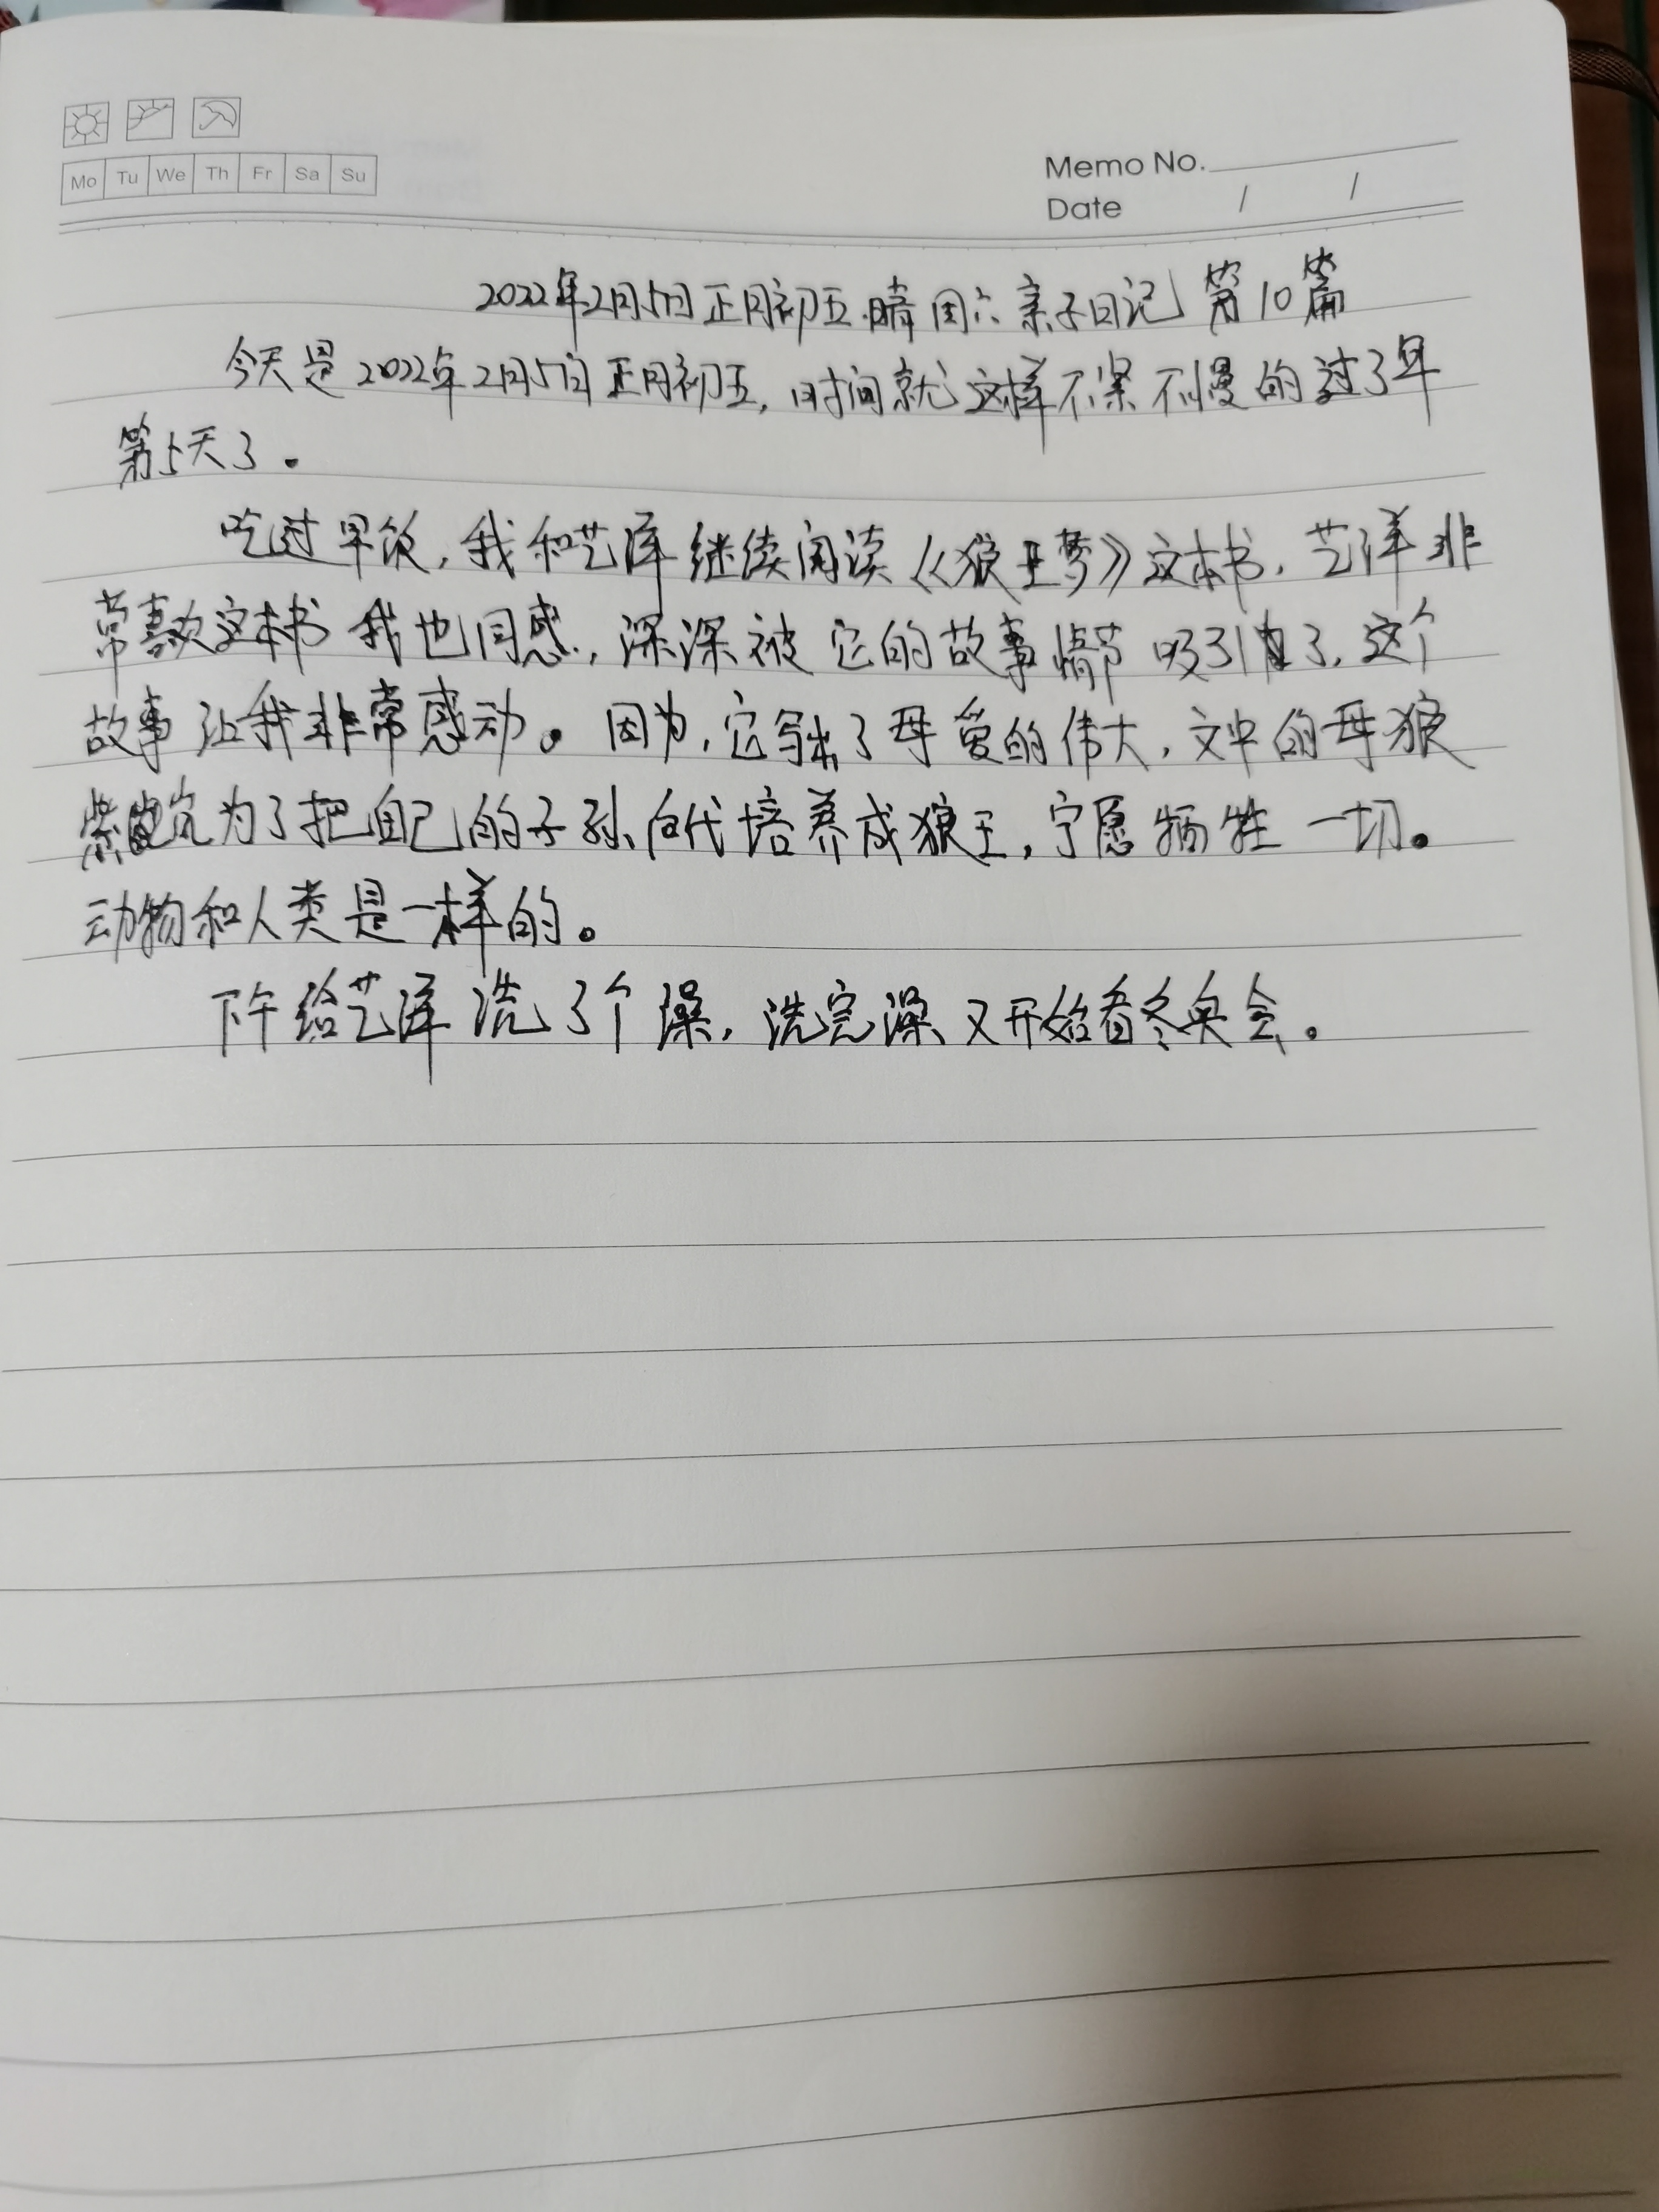 Mo Tu We Th Fr Sa Su
Memo No.
Date / /
2022年2月5日正月初五.晴 周六 亲子日记 第10篇
今天是2022年2月5日正月初五,时间就这样不紧不慢的过了年
第5天了。
吃过早饭,我和艺泽继续阅读《狼王梦》这本书,艺泽非
常喜欢这本书 我也同感,深深被它的故事情节吸引了,这个
故事让我非常感动。因为,它写出了母爱的伟大,文中的母狼
紫岚为了把自己的子孙后代培养成狼王,宁愿牺牲一切。
动物和人类是一样的。
下午给艺泽洗了个澡,洗完澡又开始看冬奥会。